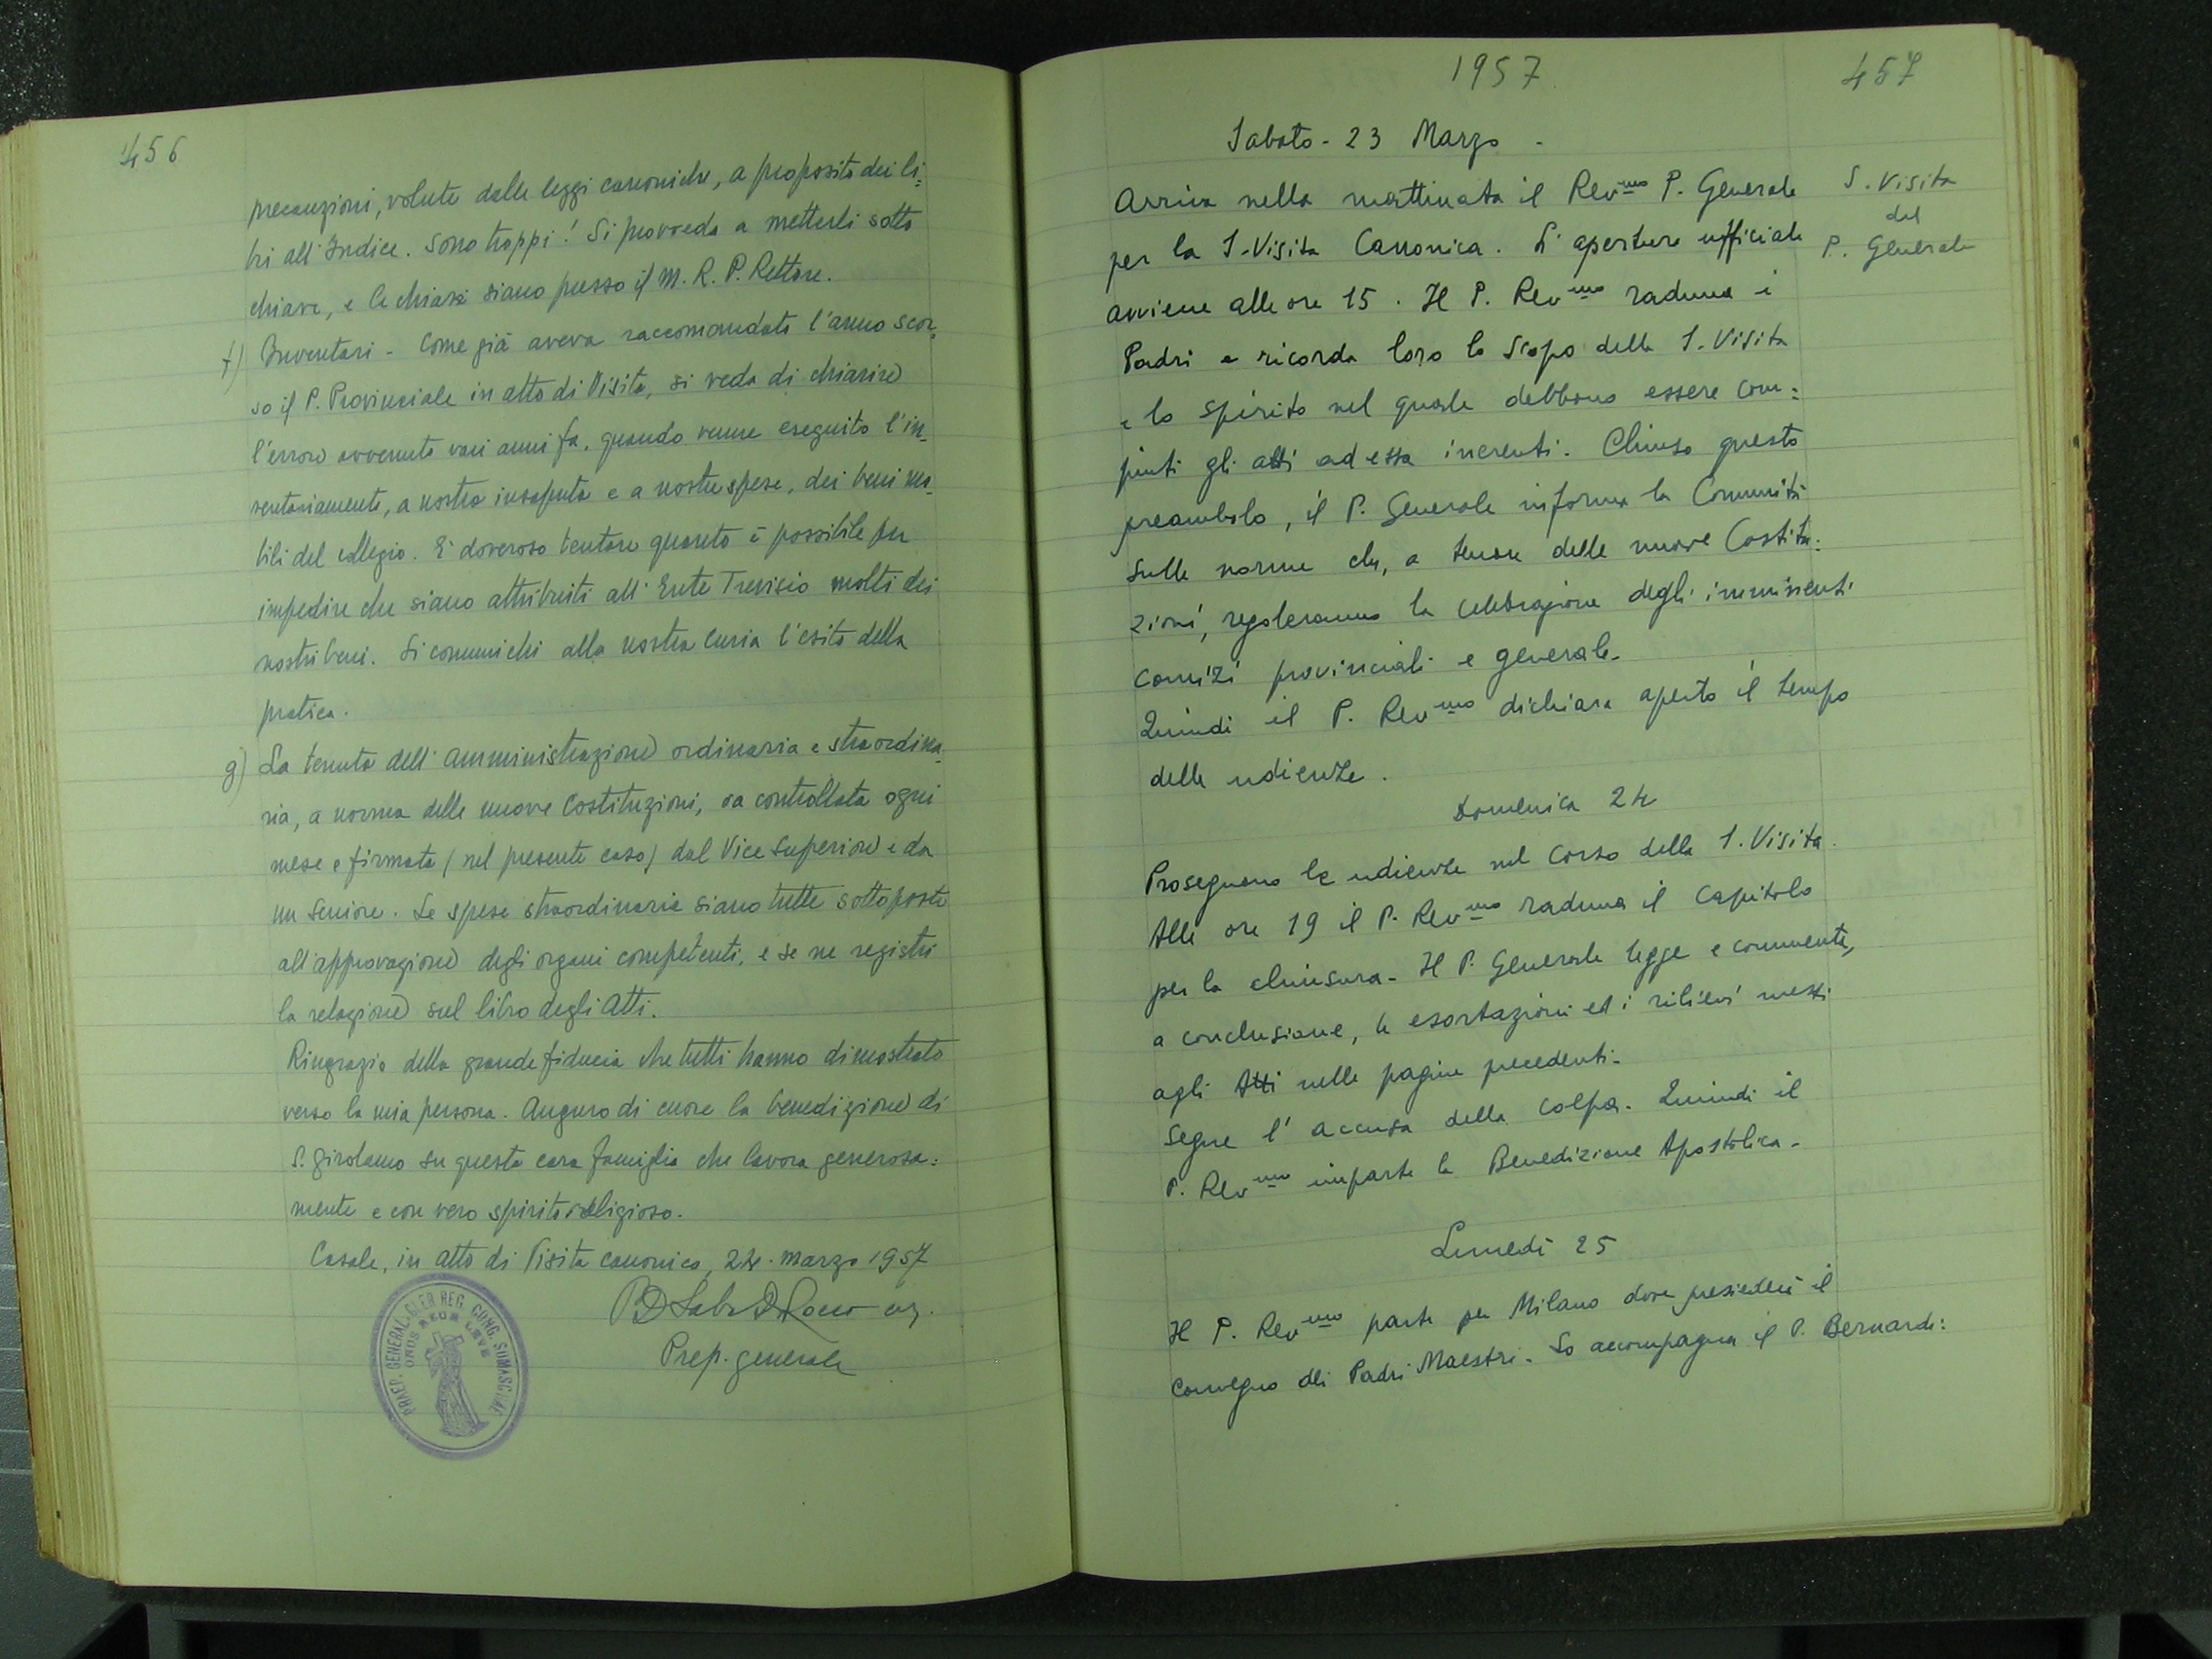 456
precauzioni, volute dalle leggi canoniche, a proposito dei li=
bri all'Indice. Sono troppi! Si provveda a metterli sotto
chiave, e le chiavi siano presso il M. R. P. Rettore.
f) Inventari - Come già aveva raccomandato l'anno scor-
so il P. Provinciale in atto di Visita, si veda di chiarire
l'errore avvenuto vari anni fa, quando venne eseguito l'in-
ventariamento, a nostra insaputa e a nostre spese, dei beni mo-
bili del collegio. E' doveroso tentare quanto è possibile per
impedire che siano attribuiti all'Ente Trevisio molti dei
nostri beni. Si comunichi alla nostra Curia l'esito della
pratica.
g) La tenuta dell'amministrazione ordinaria e straordina-
ria, a norma delle nuove Costituzioni, va controllata ogni
mese e firmata (nel presente caso) dal Vice Superiore e da
un Seniore. Le spese straordinarie siano tutte sottoposte
all'approvazione degli organi competenti, e se ne registri
la relazione sul libro degli Atti.
Ringrazio della grande fiducia che tutti hanno dimostrato
verso la mia persona. Auguro di cuore la benedizione di
S. Girolamo su questa cara famiglia che lavora generosa=
mente e con vero spirito religioso.
Casale, in atto di Visita canonica, 24. marzo 1957
Prep. generale
PRAEP. GENERAL. CLER. REG. CONG. SOMASCHAE
ONUS MEUM LEVE
1957
457
Sabato - 23 Marzo -
Arriva nella mattinata il Rev.mo P. Generale
per la S. Visita Canonica. L'apertura ufficiale
avviene alle ore 15. Il P. Rev.mo raduna i
Padri e ricorda loro lo scopo della S. Visita
e lo spirito nel quale debbono essere com=
piuti gli atti ad essa inerenti. Chiuso questo
preambolo, il P. Generale informa la Comunità
sulle norme che, a tenore delle nuove Costitu=
zioni, regoleranno la celebrazione degli imminenti
comizi provinciali e generale.
Quindi il P. Rev.mo dichiara aperto il tempo
delle udienze.
S. Visita
del
P. Generale
Domenica 24
Proseguono le udienze nel corso della S. Visita.
Alle ore 19 il P. Rev.mo raduna il Capitolo
per la chiusura. Il P. Generale legge e commenta,
a conclusione, le esortazioni ed i rilievi messi
agli Atti nelle pagine precedenti.
Segue l'accusa della colpa. Quindi il
P. Rev.mo imparte la Benedizione Apostolica.
Lunedì 25
Il P. Rev.mo parte per Milano dove presiederà il
Convegno dei Padri Maestri. Lo accompagna il P. Bernardi=